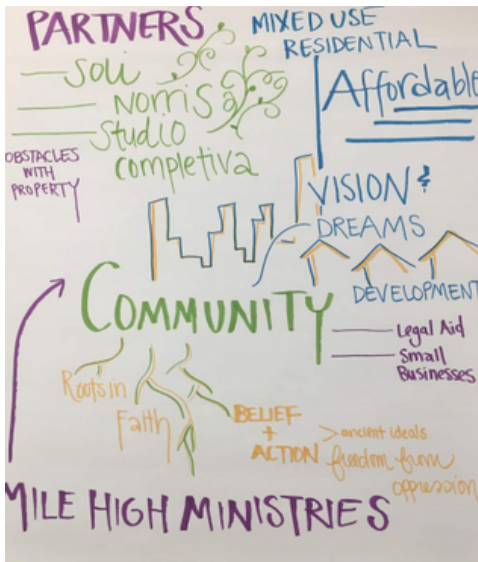 PARTNERS
Soli
Norris &
Studio
completiva
OBSTACLES
WITH
PROPERTY
MIXED USE
RESIDENTIAL
Affordable
VISION &
DREAMS
DEVELOPMENT
COMMUNITY
Legal Aid
Small
Businesses
Roots in
Faith
BELIEF
+
ACTION
> ancient ideals
freedom from
oppression
MILE HIGH MINISTRIES